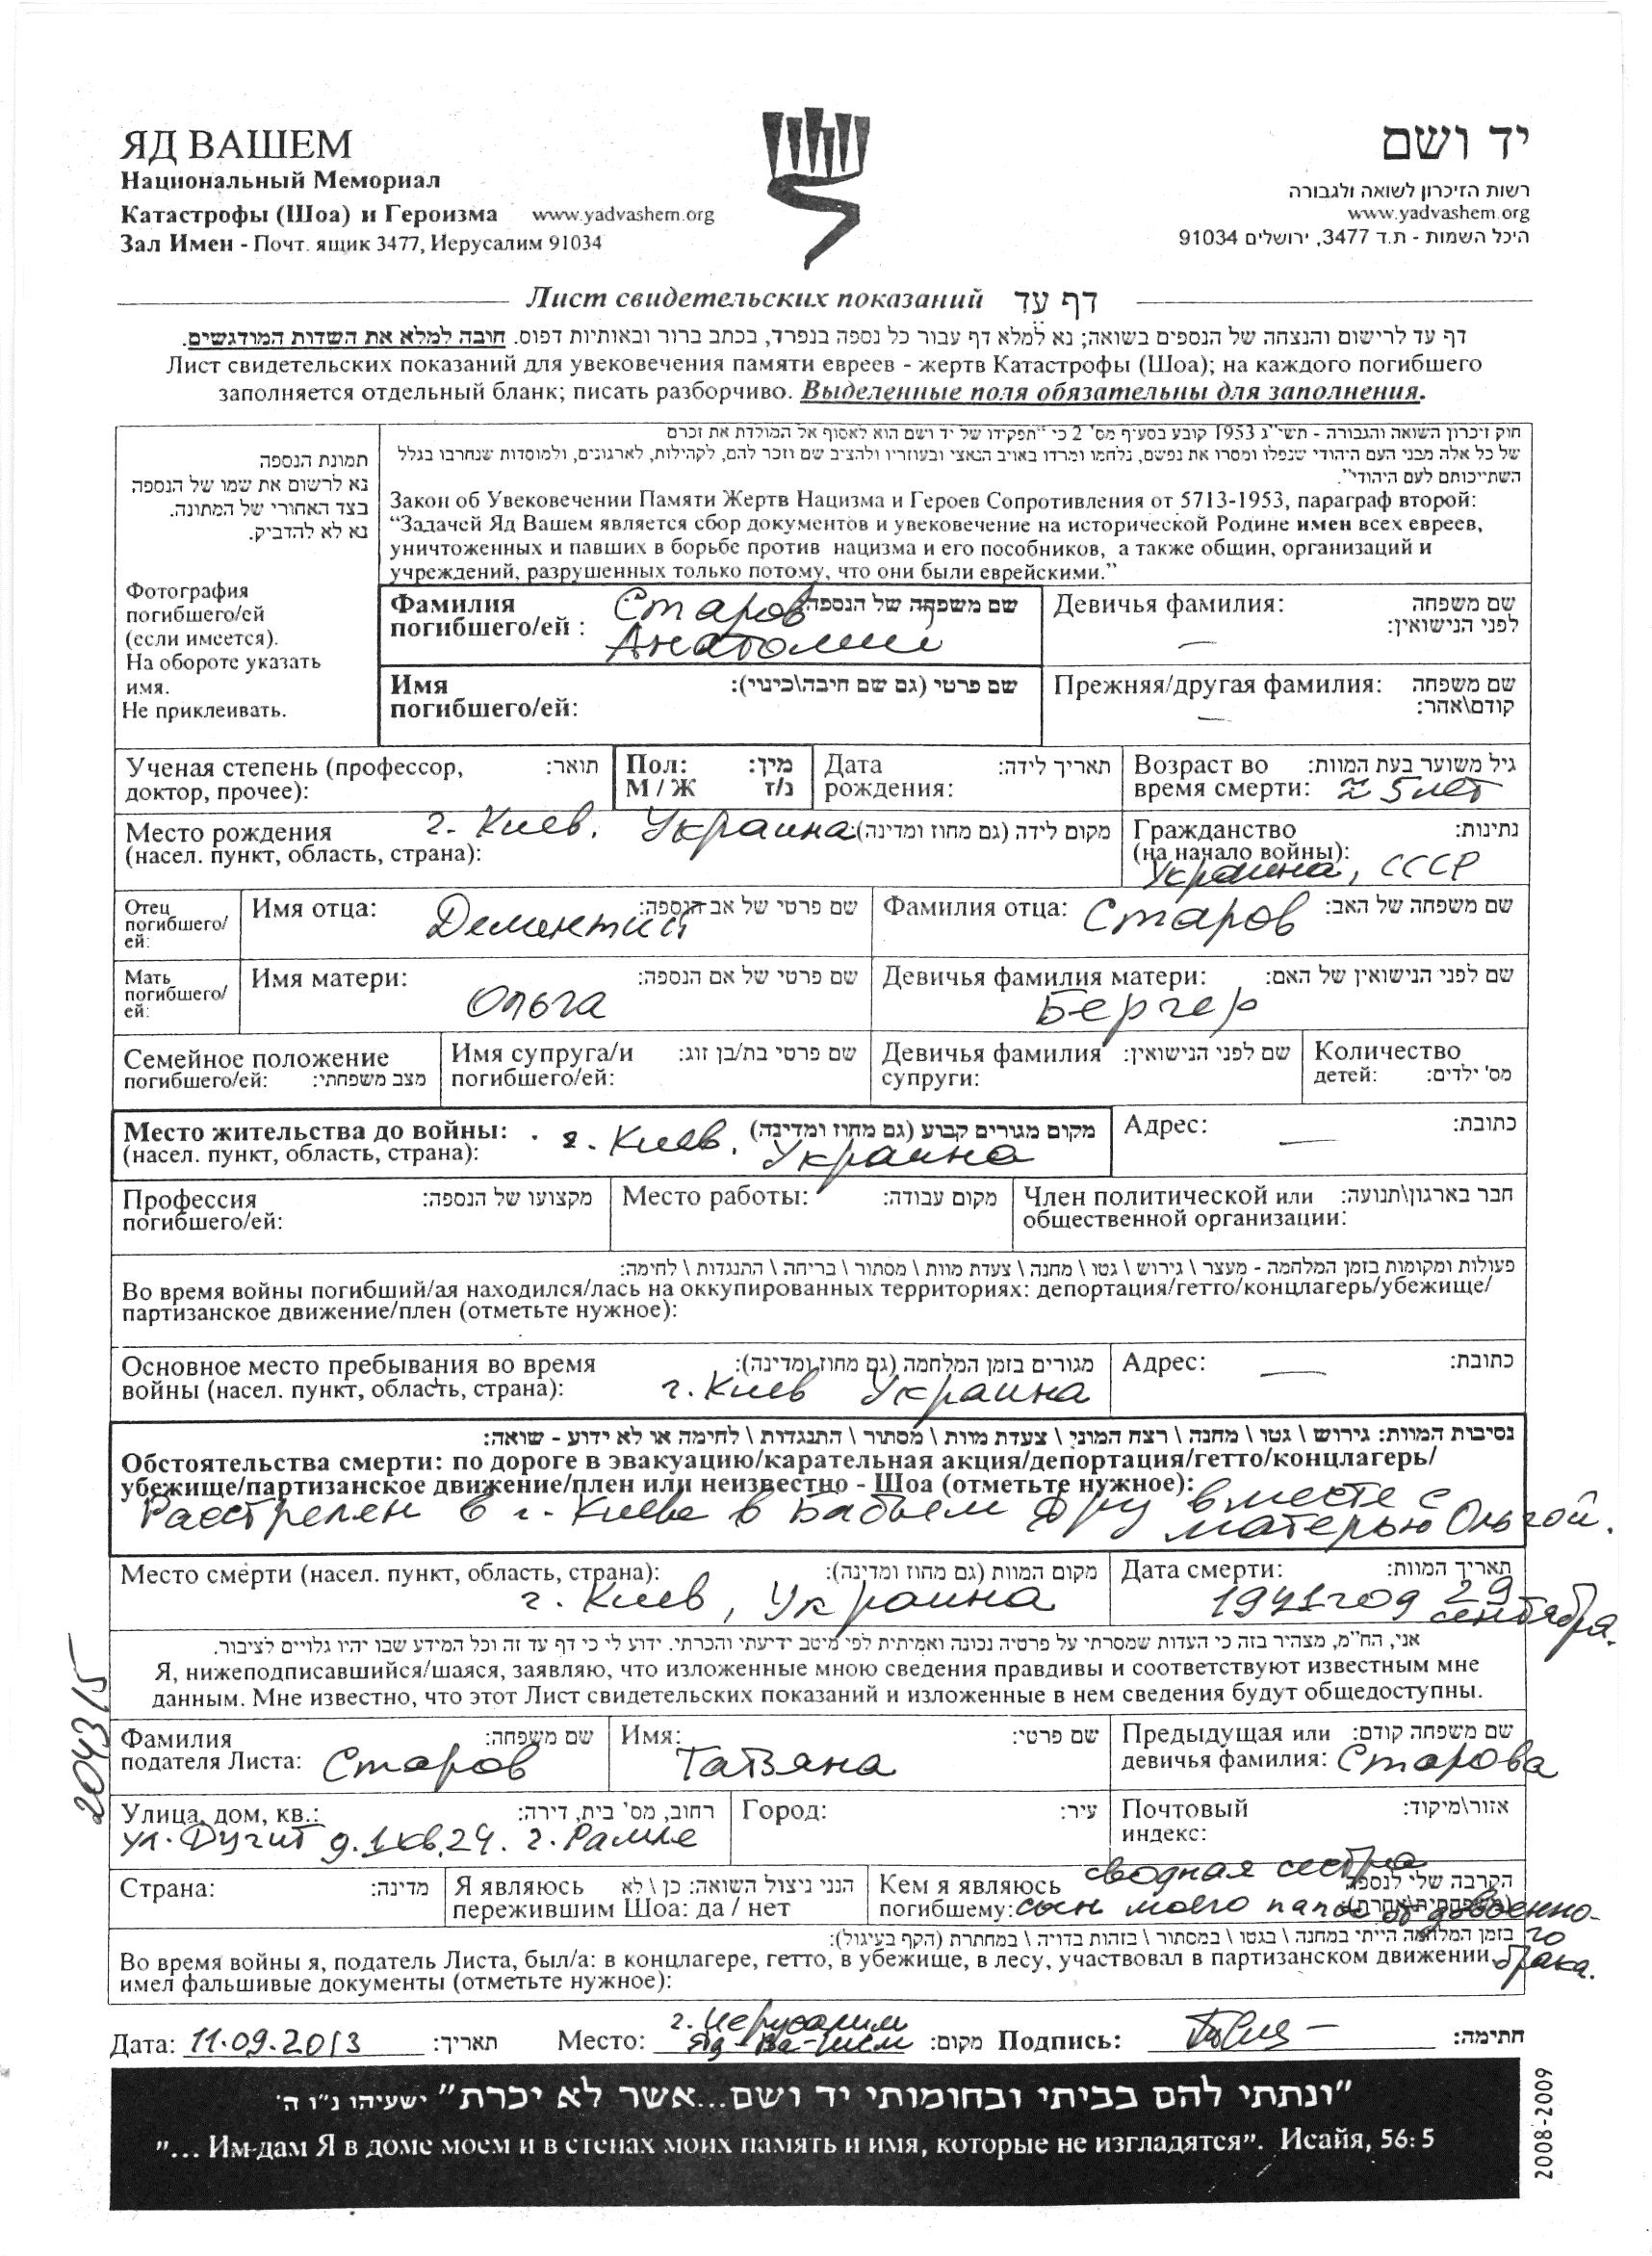 ЯД ВАШЕМ
יד ושם
Национальный Мемориал
Катастрофы (Шоа) и Героизма www.yadvashem.org
Зал Имен - Почт. ящик 3477, Иерусалим 91034
רשות הזיכרון לשואה ולגבורה
www.yadvashem.org
היכל השמות - ת.ד 3477, ירושלים 91034
Лист свидетельских показаний דף עד
דף עד לרישום והנצחה של הנספים בשואה; נא למלא דף עבור כל נספה בנפרד, בכתב ברור ובאותיות דפוס. חובה למלא את השדות המודגשים.
Лист свидетельских показаний для увековечения памяти евреев - жертв Катастрофы (Шоа); на каждого погибшего
заполняется отдельный бланк; писать разборчиво. Выделенные поля обязательны для заполнения.
תמונת הנספה
נא לרשום את שמו של הנספה
בצד האחורי של המתונה.
נא לא להדביק.
Фотография
погибшего/ей
(если имеется).
На обороте указать
имя.
Не приклеивать.
חוק זיכרון השואה והגבורה - תשי"ג 1953 קובע בסעיף מס' 2 כי "תפקידו של יד ושם הוא לאסוף אל המולדת את זכרם
של כל אלה מבני העם היהודי שנפלו ומסרו את נפשם, נלחמו ומרדו באויב הנאצי ובעוזריו ולהציב שם וזכר להם, לקהילות, לארגונים, ולמוסדות שנחרבו בגלל
השתייכותם לעם היהודי".
Закон об Увековечении Памяти Жертв Нацизма и Героев Сопротивления от 5713-1953, параграф второй:
“Задачей Яд Вашем является сбор документов и увековечение на исторической Родине имен всех евреев,
уничтоженных и павших в борьбе против нацизма и его пособников, а также общин, организаций и
учреждений, разрушенных только потому, что они были еврейскими.”
Фамилия שם משפחה של הנספה:
погибшего/ей :
Старов
Анатолий
Девичья фамилия: שם משפחה
לפני הנישואין:
—
Имя שם פרטי (גם שם חיבה\כינוי):
погибшего/ей:
Прежняя/другая фамилия: שם משפחה
קודם\אחר:
—
Ученая степень (профессор, תואר:
доктор, прочее):
Пол: מין:
М / Ж ז/נ
Дата תאריך לידה:
рождения:
Возраст во גיל משוער בעת המוות:
время смерти: ≈ 5 лет
Место рождения г. Киев, Украина מקום לידה (גם מחוז ומדינה):
(насел. пункт, область, страна):
Гражданство נתינות:
(на начало войны):
Украина, СССР
Отец
погибшего/
ей:
Имя отца: Дементий שם פרטי של אב הנספה:
Фамилия отца: Старов שם משפחה של האב:
Мать
погибшего/
ей:
Имя матери: שם פרטי של אם הנספה:
Ольга
Девичья фамилия матери: שם לפני הנישואין של האם:
Бергер
Семейное положение
погибшего/ей: מצב משפחתי:
Имя супруга/и שם פרטי בת/בן זוג:
погибшего/ей:
Девичья фамилия שם לפני הנישואין:
супруги:
Количество
детей: מס' ילדים:
Место жительства до войны: г. Киев, מקום מגורים קבוע (גם מחוז ומדינה)
(насел. пункт, область, страна): Украина
Адрес: — כתובת:
Профессия מקצועו של הנספה:
погибшего/ей:
Место работы: מקום עבודה:
Член политической или חבר בארגון\תנועה:
общественной организации:
פעולות ומקומות בזמן המלחמה - מעצר \ גירוש \ גטו \ מחנה \ צעדת מוות \ מסתור \ בריחה \ התנגדות \ לחימה:
Во время войны погибший/ая находился/лась на оккупированных территориях: депортация/гетто/концлагерь/убежище/
партизанское движение/плен (отметьте нужное):
Основное место пребывания во время מגורים בזמן המלחמה (גם מחוז ומדינה):
войны (насел. пункт, область, страна): г. Киев Украина
Адрес: — כתובת:
נסיבות המוות: גירוש \ גטו \ מחנה \ רצח המוני \ צעדת מוות \ מסתור \ התנגדות \ לחימה או לא ידוע - שואה:
Обстоятельства смерти: по дороге в эвакуацию/карательная акция/депортация/гетто/концлагерь/
убежище/партизанское движение/плен или неизвестно - Шоа (отметьте нужное):
Расстрелен в г. Киеве в Бабьем Яру вместе с
матерью Ольгой.
Место смерти (насел. пункт, область, страна): מקום המוות (גם מחוז ומדינה):
г. Киев, Украина
Дата смерти: תאריך המוות:
1941 год 29
сентября.
אני, הח"מ, מצהיר בזה כי העדות שמסרתי על פרטיה נכונה ואמיתית לפי מיטב ידיעתי והכרתי. ידוע לי כי דף עד זה וכל המידע שבו יהיו גלויים לציבור.
Я, нижеподписавшийся/шаяся, заявляю, что изложенные мною сведения правдивы и соответствуют известным мне
данным. Мне известно, что этот Лист свидетельских показаний и изложенные в нем сведения будут общедоступны.
204315
Фамилия שם משפחה:
подателя Листа: Старов
Имя: שם פרטי:
Татьяна
Предыдущая или שם משפחה קודם:
девичья фамилия: Старова
Улица, дом, кв.: רחוב, מס' בית, דירה:
ул. Дугит д. 1 кв. 24. г. Рамле
Город: עיר:
Почтовый אזור\מיקוד:
индекс:
Страна: מדינה:
Я являюсь הנני ניצול השואה: כן \ לא
пережившим Шоа: да / нет
Кем я являюсь сводная сестра הקרבה שלי לנספה
погибшему: сын моего папы от довоенно-
го
брака.
(משפחתית\אחרת):
בזמן המלחמה הייתי במחנה \ בגטו \ במסתור \ בזהות בדויה \ במחתרת (הקף בעיגול):
Во время войны я, податель Листа, был/а: в концлагере, гетто, в убежище, в лесу, участвовал в партизанском движении,
имел фальшивые документы (отметьте нужное):
Дата: 11.09.2013 תאריך: Место: г. Иерусалим
Яд-Ва-Шем מקום: Подпись: חתימה:
"ונתתי להם בביתי ובחומותי יד ושם...אשר לא יכרת" ישעיהו נ"ו ה'
”... Им дам Я в доме моем и в стенах моих память и имя, которые не изгладятся”. Исайя, 56: 5
2008-2009